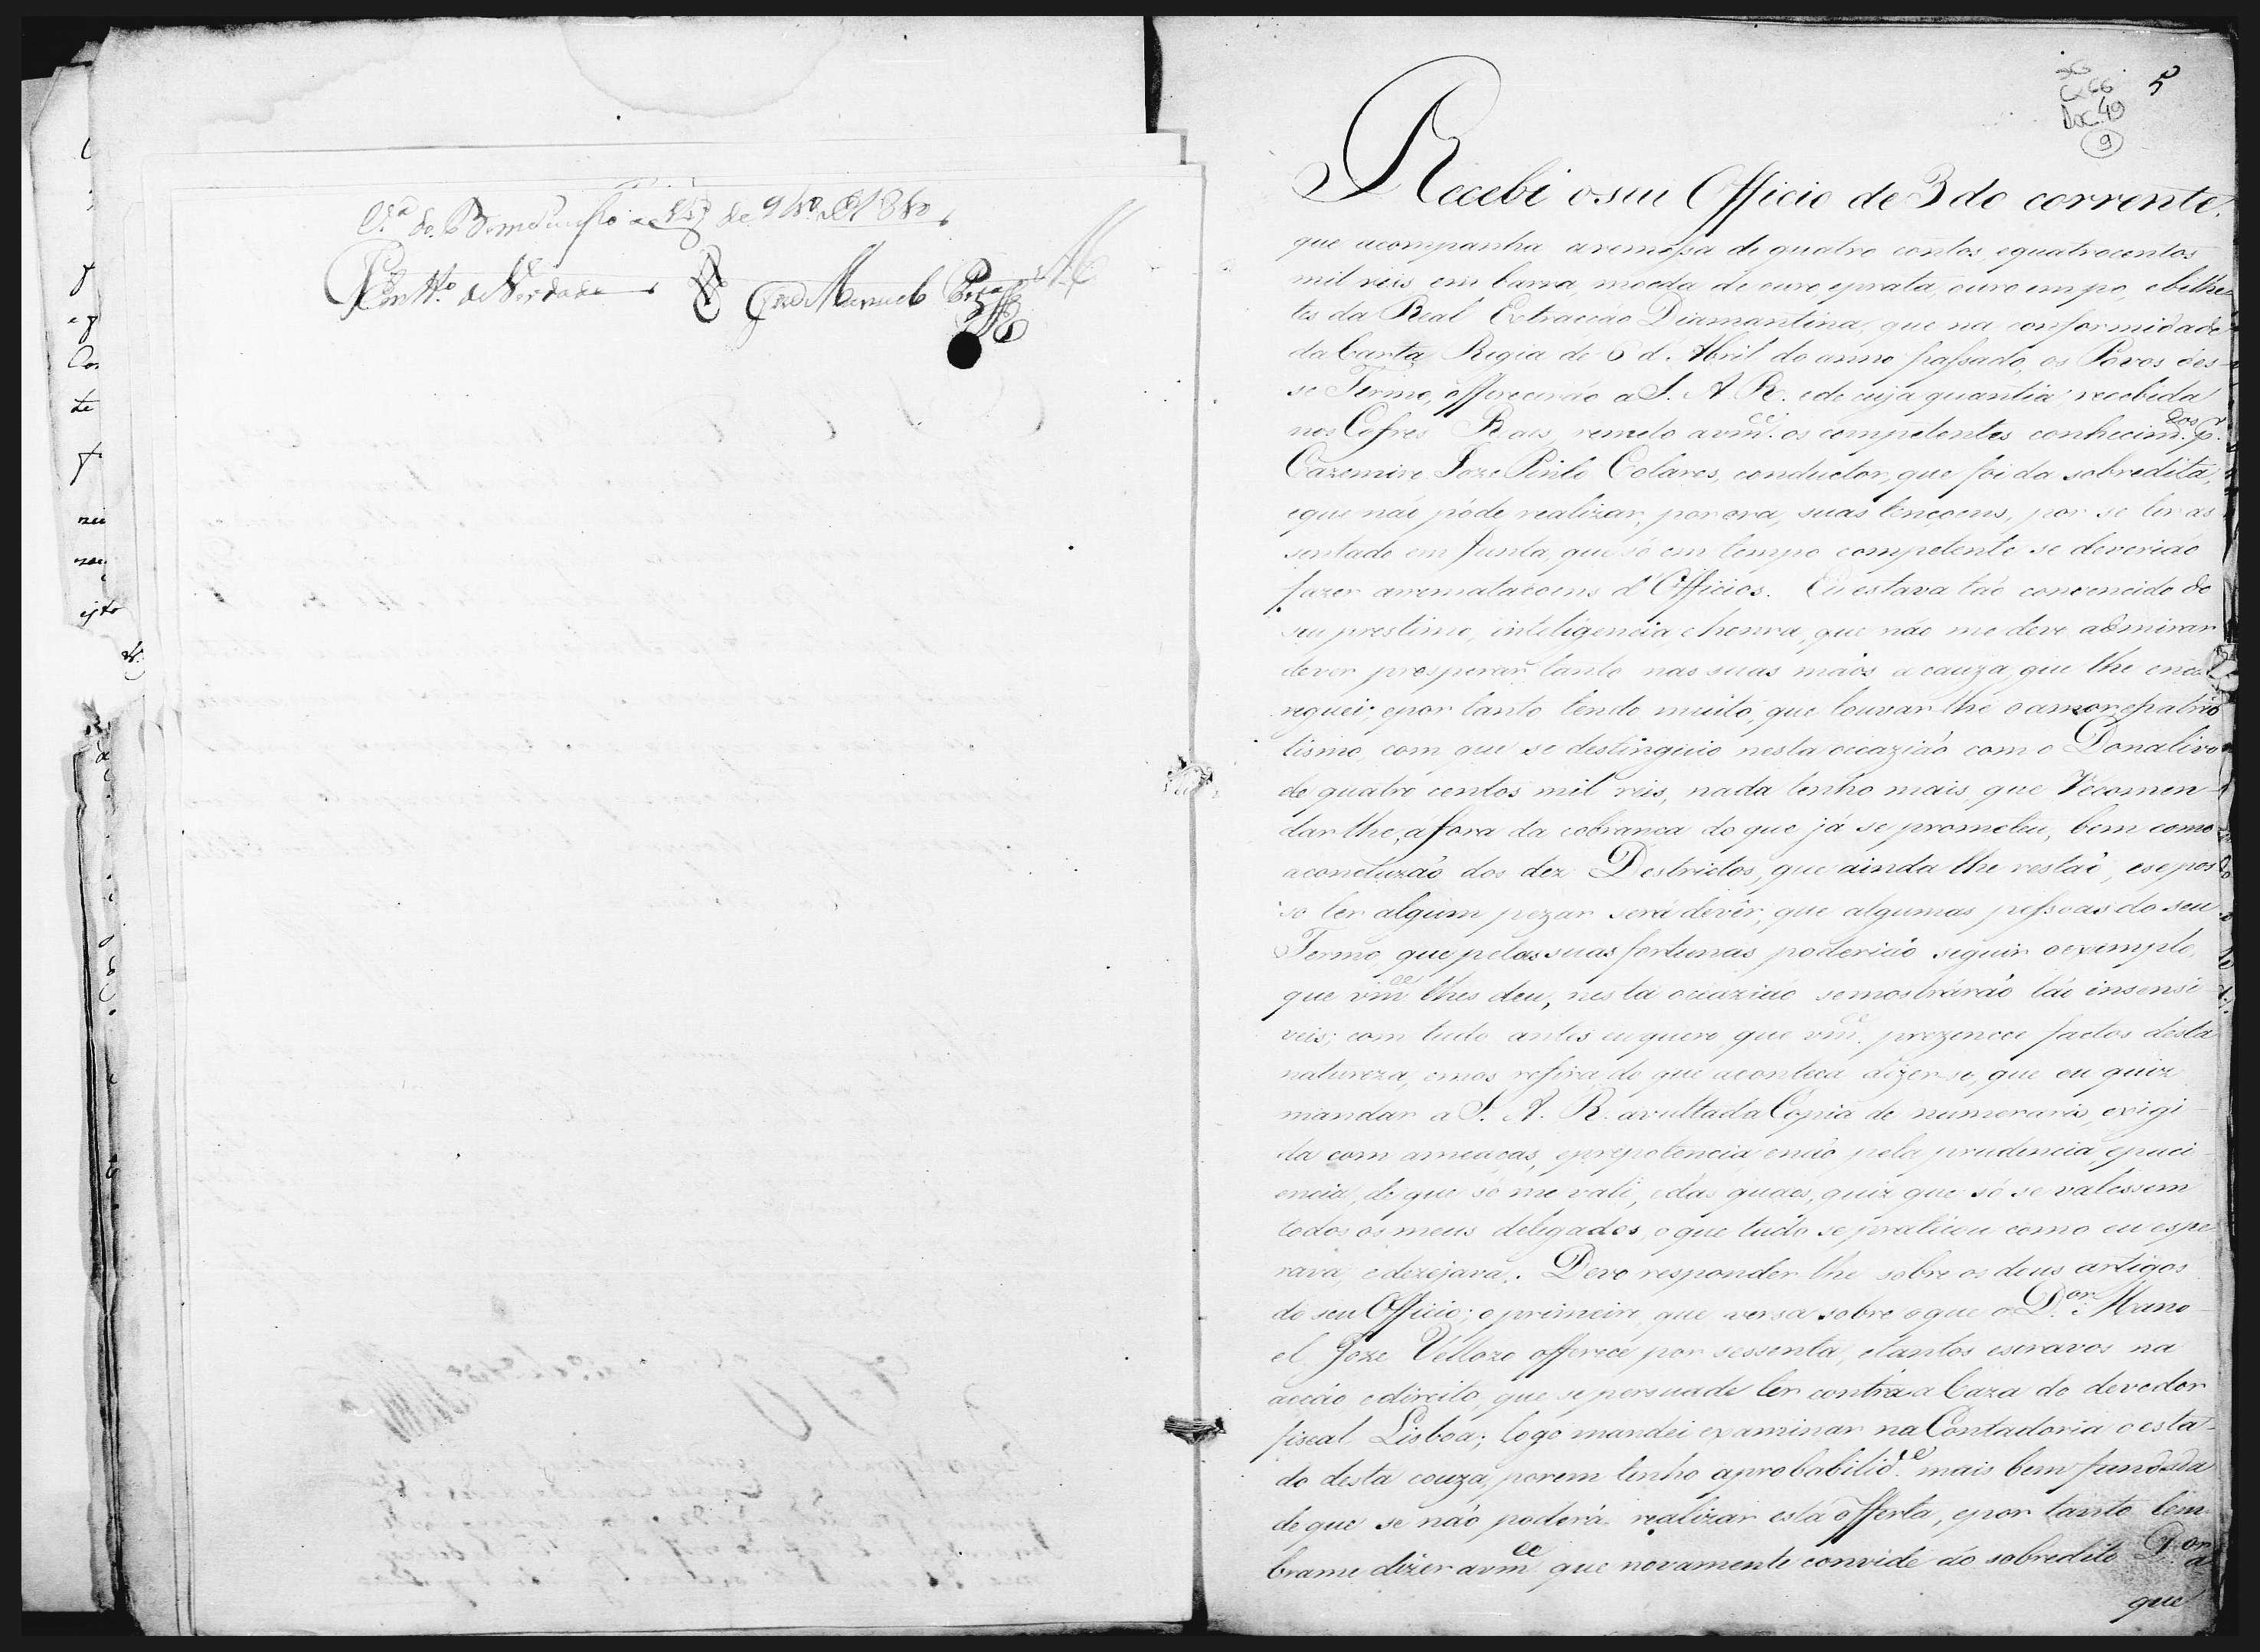 V.ª do Bom Successo
Em tt.º de Verdade
Joze Manoel
5
Cx 66
Doc. 49
9
Recebi o seu Officio de 3 do corrente,
que acompanha a remessa de quatro contos, equatrocentos
mil reis, em barra, moeda de ouro eprata, ouro em po, e bilhe
tes da Real Extracçao Diamantina, que na conformidade
da Carta Regia de 6 d'Abril do anno passado, os Povos des-
se Termo, offerecerão a S. A. R. e de cuja quantia recebida
nos Cofres Reaes, remeto avm.ce os competentes conhecim.dos p.r
Cazemiro Joze Pinto Colares, conductor, que foi da sobredita,
eque não póde realizar, por ora, suas tençoens, por se ter as
sentado em Junta, que só em tempo competente se deverião
fazer arremataçoens d'Officios. Eu estava tão convencido do
seu prestimo, inteligencia e honra, que não me deve admirar
dever prosperar tanto nas suas mãos a cauza, que lhe encar
reguei; epor tanto tendo muito, que louvar lhe o amor epatrio
tismo, com que se destinguio nesta occazião com o Donativo
de quatro centos mil reis, nada tenho mais, que Recomen-
dar lhe, áfora da cobrança do que já se prometeu, bem como
aconcluzão dos dez Destrictos, que ainda lhe restão, ese pos
so ter algum pezar será devêr, que algumas pessoas do seu
Termo, que pelas suas fortunas poderião seguir oexemplo,
que vm.ce lhes deu, nesta occazião semostrárão tão insensi
veis; com tudo antes euquero, que vm.ce prezencee factos desta
natureza, emos refira, do que aconteca dizer-se, que eu quiz
mandar a S. A. R. avultada Copia de numerario, exigi-
da com ameaças, eprepotencia enão pela prudencia, epaci-
encia, de que só me vali, edas quaes, quiz que só se valessem
todos os meus delegados, o que tudo sepraticou como eu espe
rava, edezejava. Devo responder lhe sobre os deus artigos
do seu Officio; o primeiro, que versa sobre oque o D.or Mano-
el Joze Vellozo offerece por sessenta, etantos escravos na
acção edireito, que sepersuade ter contra a Caza do devedor
fiscal Lisboa; logo mandei examinar na Contadoria o esta-
do desta couza, porem tenho aprobabilid.e mais bem fundada
de que se não poderá realizar esta offerta, epor tanto lem
brame dizer avm.ce que novamente convide ao sobredito D.or a
que